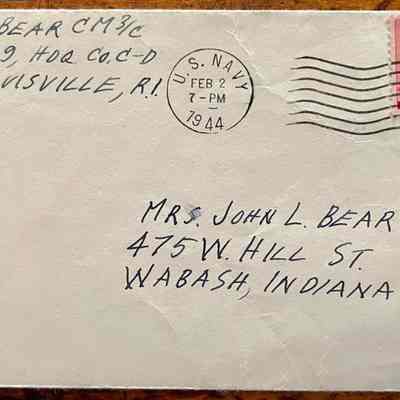 BEAR CM 3/C
9, HDQ CO. C-D
VISVILLE, R.I.
U.S. NAVY
FEB 2
7-PM
1944
MRS. JOHN L. BEAR
475 W. HILL ST.
WABASH, INDIANA